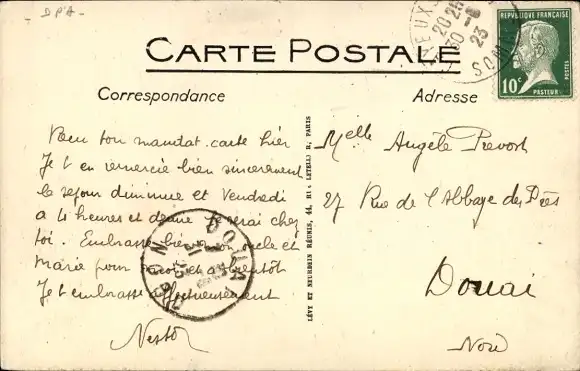 - DPA -
CARTE POSTALE
Correspondance
Adresse
REPUBLIQUE FRANÇAISE
POSTES
10c
PASTEUR
20 25
30 -8
23
SOMME
Reçu ton mandat-carte hier
Je t'en remercie bien sincèrement
le sejour diminue et Vendredi
a 4 heures et demie je serai chez
toi. Embrasse bien mon oncle et
Marie pour moi et a bientôt
Je t'embrasse affectueusement
Nestor
Melle Angèle Prevost
27 Rue de l'Abbaye des Prés
Douai
Nord
LÉVY ET NEURDEIN RÉUNIS, 44, RUE LETELLIER, PARIS
DOUAI
NORD